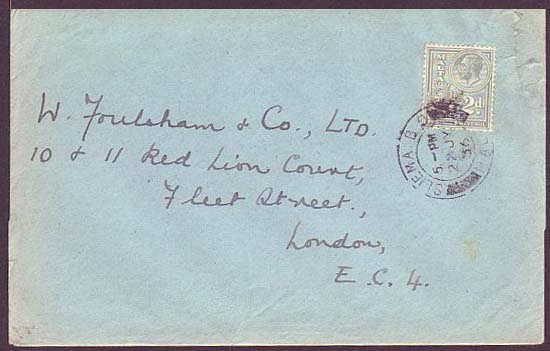 W. Foulsham & Co., LTD.
10 & 11 Red Lion Court,
Fleet Street.,
London,
E.C.4.
MALTA
2d
SLIEMA
5 - PM
22 JY